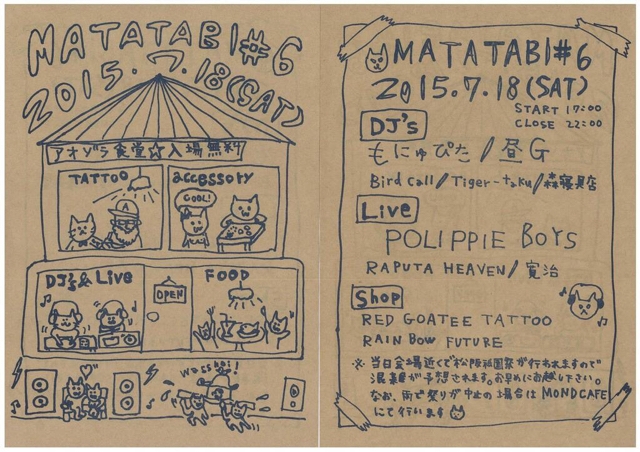 MATATABI#6
2015.7.18(SAT)
アオゾラ食堂☆入場無料
TATTOO
accessory
COOL!
A
DJ's & Live
OPEN
FOOD
wasshoi!
MATATABI#6
2015.7.18(SAT)
START 17:00
CLOSE 22:00
DJ's
もにゅぴた/昼G
Bird Call/Tiger-taku/森寝具店
Live
POLIPPIE BOYS
RAPUTA HEAVEN/寛治
Shop
RED GOATEE TATTOO
RAIN BOW FUTURE
※当日会場近くで松阪祇園祭が行われますので
混雑が予想されます。お早めにお越し下さい。
なお、雨で祭りが中止の場合はMONDCAFE
にて行います